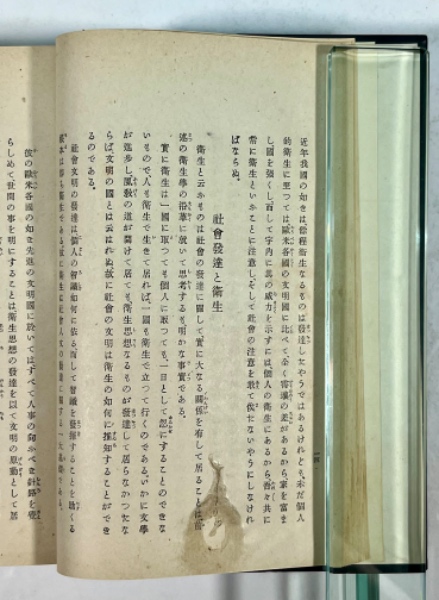 近年我國の如きは、餘程衞生なるものは發達したやうではあるけれども、未だ個人
的衞生に至つては、歐米各國の文明國に比べて、全く霄壤の差があるから、家を富ま
し、國を強くし、而して宇内に其の威力を示すには、個人の衞生にあるから、吾々共に
常に衞生といふことに注意し、そして社會の注意を敢て俟たないやうにしなけれ
ばならぬ。
社會發達と衞生
衞生と云ふものは、社會の發達に關して、實に大なる關係を有して居ることは、
述の衞生學の沿革に就いて思考するも、明かな事實である。
實に衞生は一國に取つても、個人に取つても、一日として忽にすることのできな
いもので、人も衞生で生きて居れば、一國も衞生で立つて行くのである。いかに文學
が進歩し、風敎の道が開けて居ても、衞生思想なるものが發達して居らなかつたな
らば、文明の國とは云はれぬ。故に社會の文明は、衞生の如何に推知することができ
るのである。
社會文明の發達は、個人の智識如何に依る。而して智識を發揮することを助くる
根本は即ち衞生である。故に衞生は社會人文の發達に關する一大
彼の歐米各國の如き先進の文明國に於いては、すべて人事の向かべき針路を覺
らしめて、世間の事を明にすることは、衞生思想の發達を以て、文明の原動として居